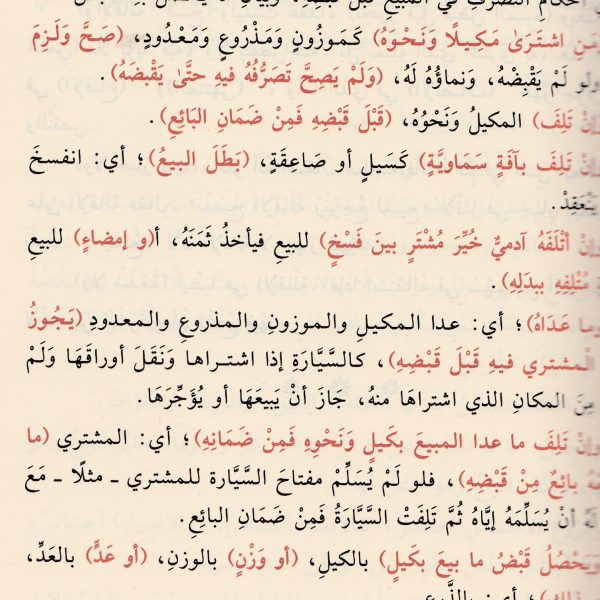 أحكام التصرف في المبيع قبل قبضه
(مَنِ اشتَرَىٰ مَكِيلًا وَنَحْوَهُ) كَمَوزُونٍ وَمَذْرُوعٍ وَمَعْدُودٍ، (صَحَّ وَلَزِمَ
ولو لَمْ يَقْبِضْهُ، وَنماؤُهُ لَهُ، (وَلَمْ يَصِحَّ تَصَرُّفُهُ فيهِ حتَّىٰ يَقْبِضَهُ).
إنْ تَلِفَ) المكيلُ وَنَحْوُهُ، (قَبْلَ قَبْضِهِ فَمِنْ ضَمَانِ البَائِعِ).
إنْ تَلِفَ بآفَةٍ سَمَاوِيَّةٍ) كَسَيلٍ أو صَاعِقَةٍ، (بَطَلَ البيعُ)؛ أي: انفسخَ
يَنْعقِدْ.
وإنْ أتْلَفَهُ آدميٌّ خُيِّرَ مُشْتَرٍ بينَ فَسْخٍ) للبيعِ فيأخذُ ثَمَنَهُ، أ(و إمضاءٍ) للبيعِ
مُتْلِفِهِ بِبدَلِهِ).
وما عَدَاهُ)؛ أي: عدا المكيلِ والموزونِ والمذروعِ والمعدودِ (يَجُوزُ
الْمشتري فيهِ قَبْلَ قَبْضِهِ)، كالسَّيَّارَةِ إذا اشتراها وَنَقَلَ أوراقَهَا وَلَمْ
مِنَ المكانِ الذي اشتراهَا منهُ، جَازَ أنْ يَبيعَهَا أو يُؤَجِّرَهَا.
وإنْ تَلِفَ ما عدا المبيعَ بكَيلٍ وَنَحْوِهِ فَمِنْ ضَمَانِهِ)؛ أي: المشتري (ما
بائِعٌ مِنْ قَبْضِهِ)، فلو لَمْ يُسَلِّمْ مفتاحَ السَّيَّارة للمشتري ـ مثلًا ـ مَعَ
أنْ يُسَلِّمَهُ إيَّاهُ ثُمَّ تَلِفَتْ السَّيَّارَةُ فَمِنْ ضَمَانِ البائعِ.
وَيَحْصُلُ قَبْضُ ما بيعَ بكَيلٍ) بالكيلِ، (أو وَزْنٍ) بالوزنِ، (أو عَدٍّ) بالعَدِّ،
؛ أي: بالذَّرعِ